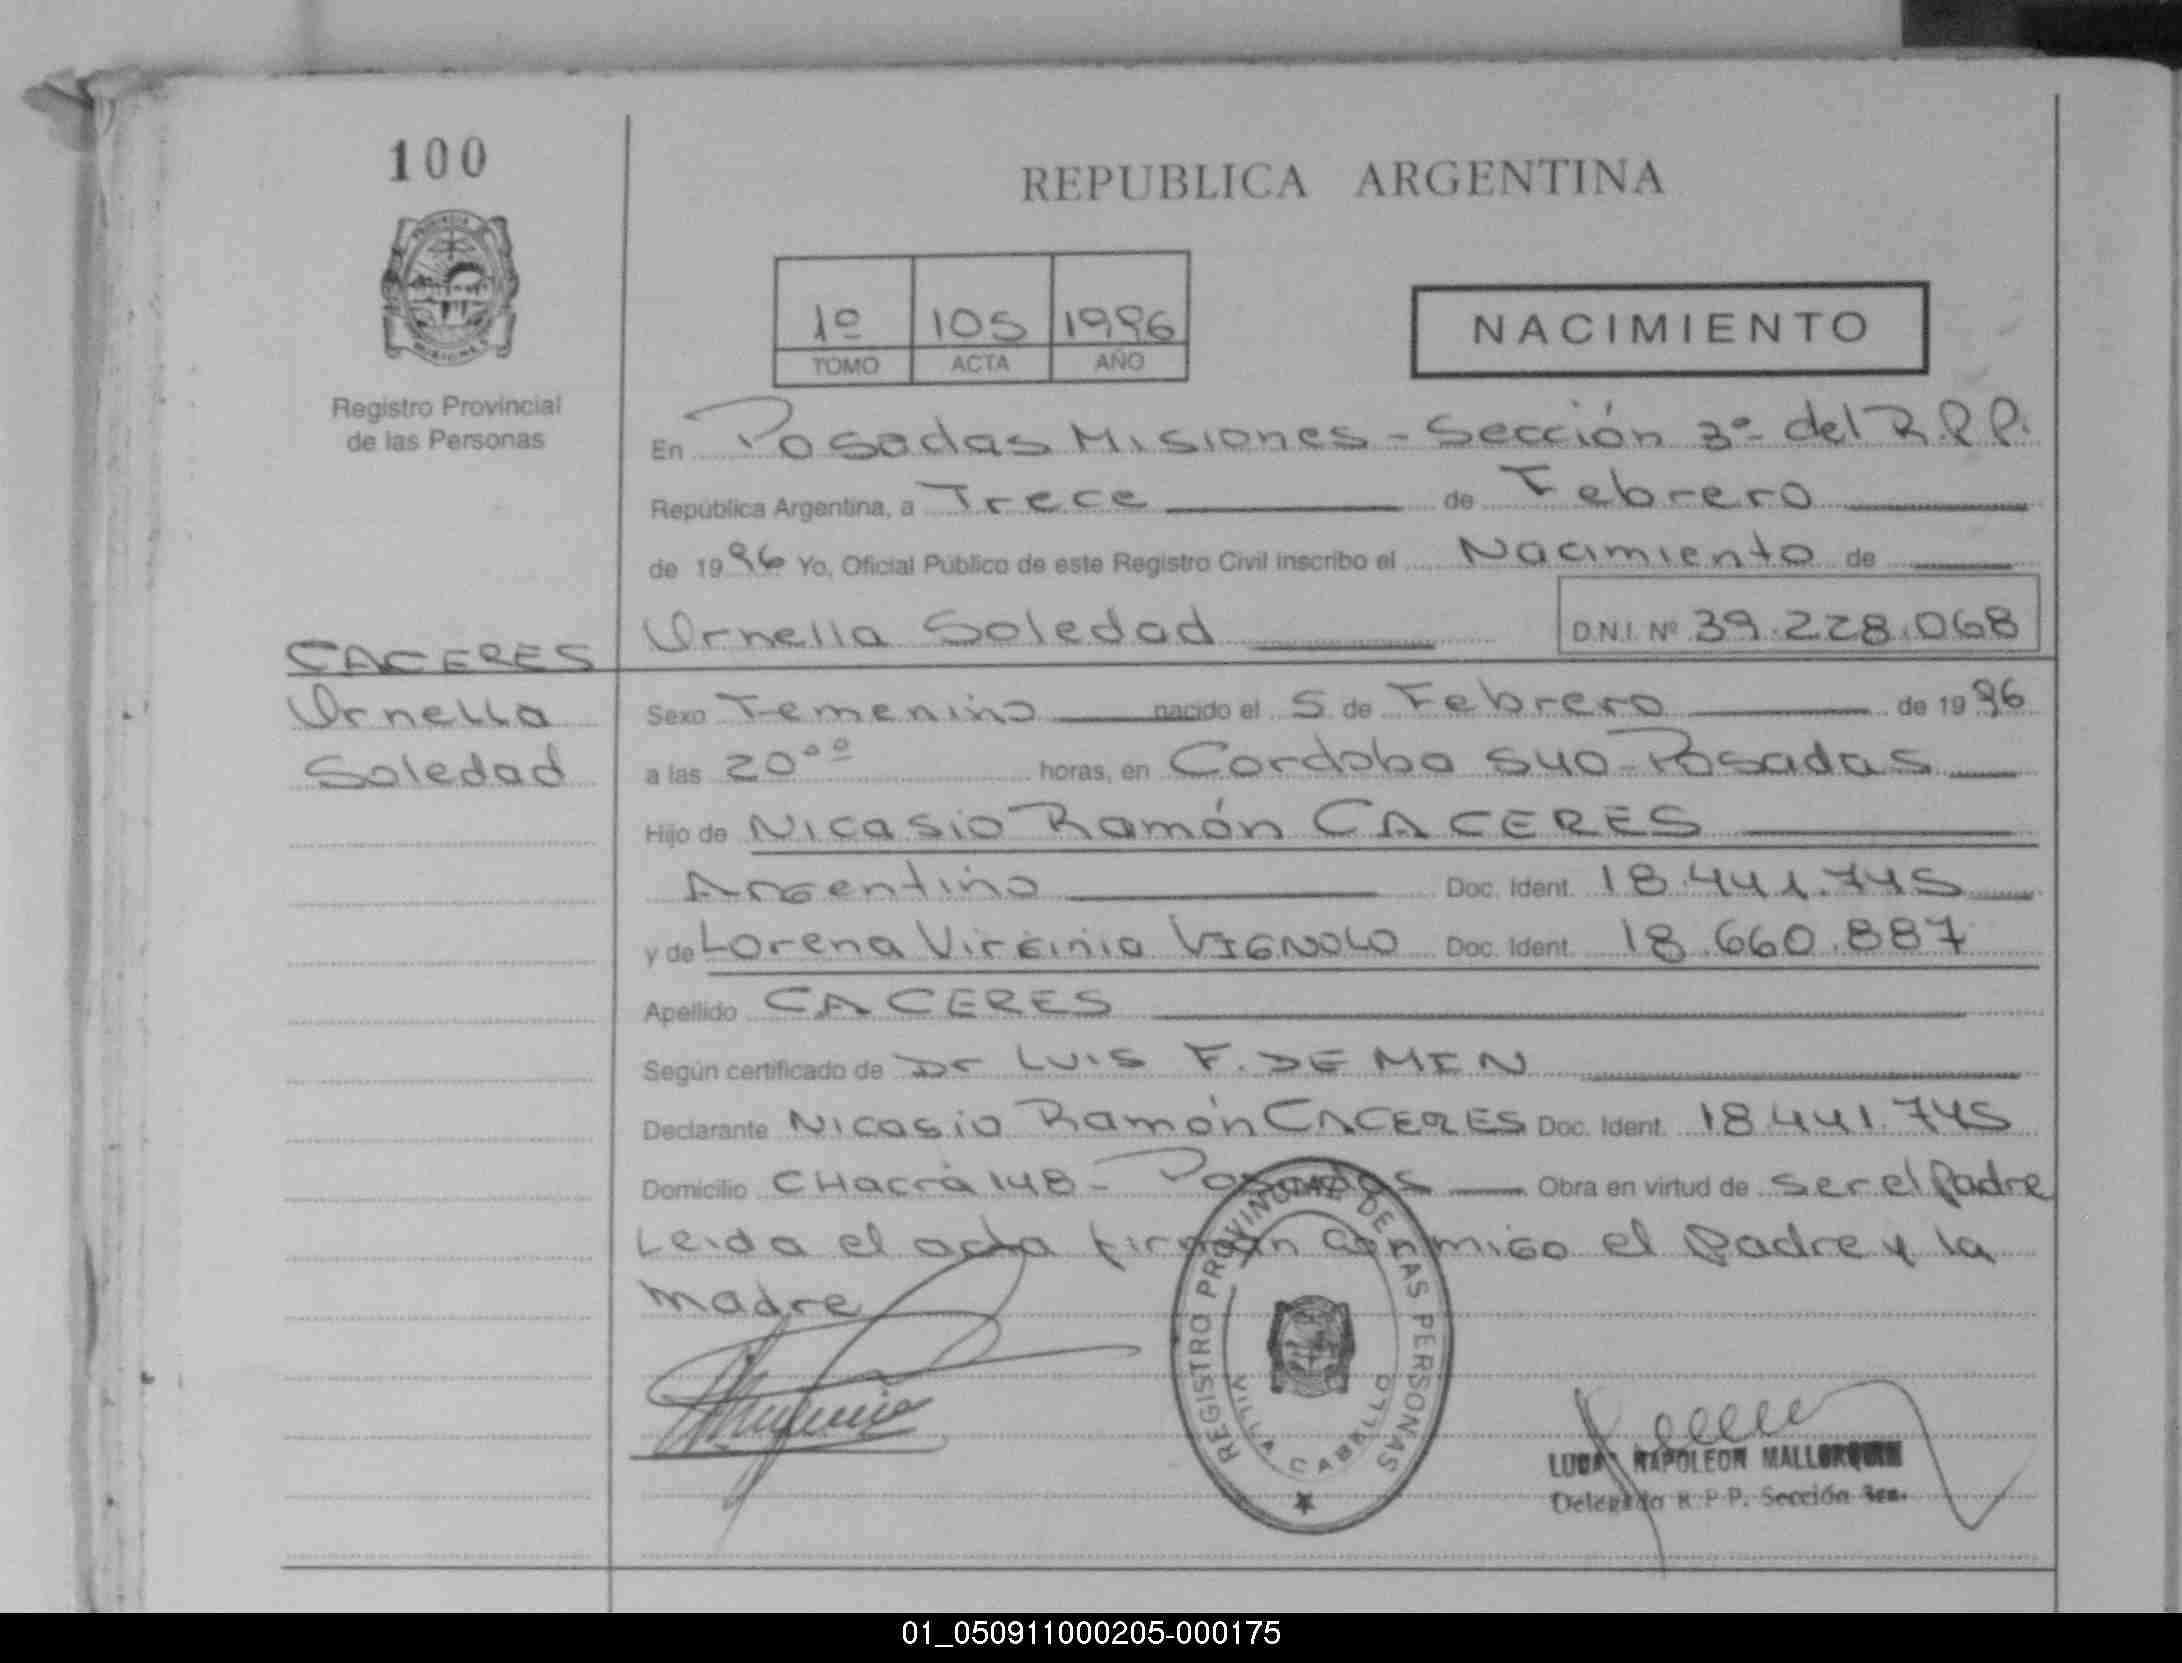 100
REPUBLICA ARGENTINA
1º 105 1996
TOMO ACTA AÑO
NACIMIENTO
Registro Provincial
de las Personas
En Posadas Misiones - Sección 3º del R.P.P.
República Argentina, a Trece de Febrero
de 1996 Yo, Oficial Público de este Registro Civil inscribo el Nacimiento de
Urnella Soledad D.N.I. Nº 39.228.068
CACERES
Urnella
Soledad
Sexo Femenino nacido el 5 de Febrero de 1996
a las 20°° horas, en Cordoba 540 - Posadas
Hijo de Nicasio Ramón CACERES
Argentino Doc. Ident. 18.441.745
y de Lorena Virginia VIGNOLO Doc. Ident. 18.660.887
Apellido CACERES
Según certificado de Dr LUIS F. DEMEN
Declarante Nicasio Ramón CACERES Doc. Ident. 18.441.745
Domicilio CHacra 148 - Posadas Obra en virtud de ser el Padre
Leida el acta firman conmigo el Padre y la
madre
REGISTRO PROVINCIAL DE LAS PERSONAS
VILLA CABALLO
LUCAS NAPOLEON
Delegado R.P.P. Sección 3ra.
01_050911000205-000175